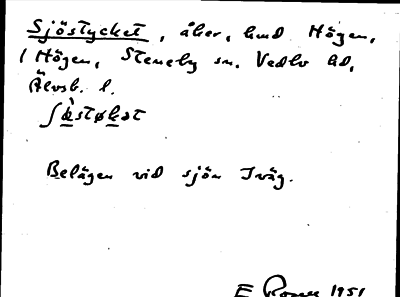 Sjöstycket, åker, hmd Högen,
1 Högen, Steneby sn. Vedbo hd,
Älvsb. l.
Belägen vid sjön Iväg.
E 1951